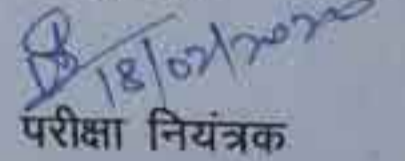 18/02/2020
परीक्षा नियंत्रक